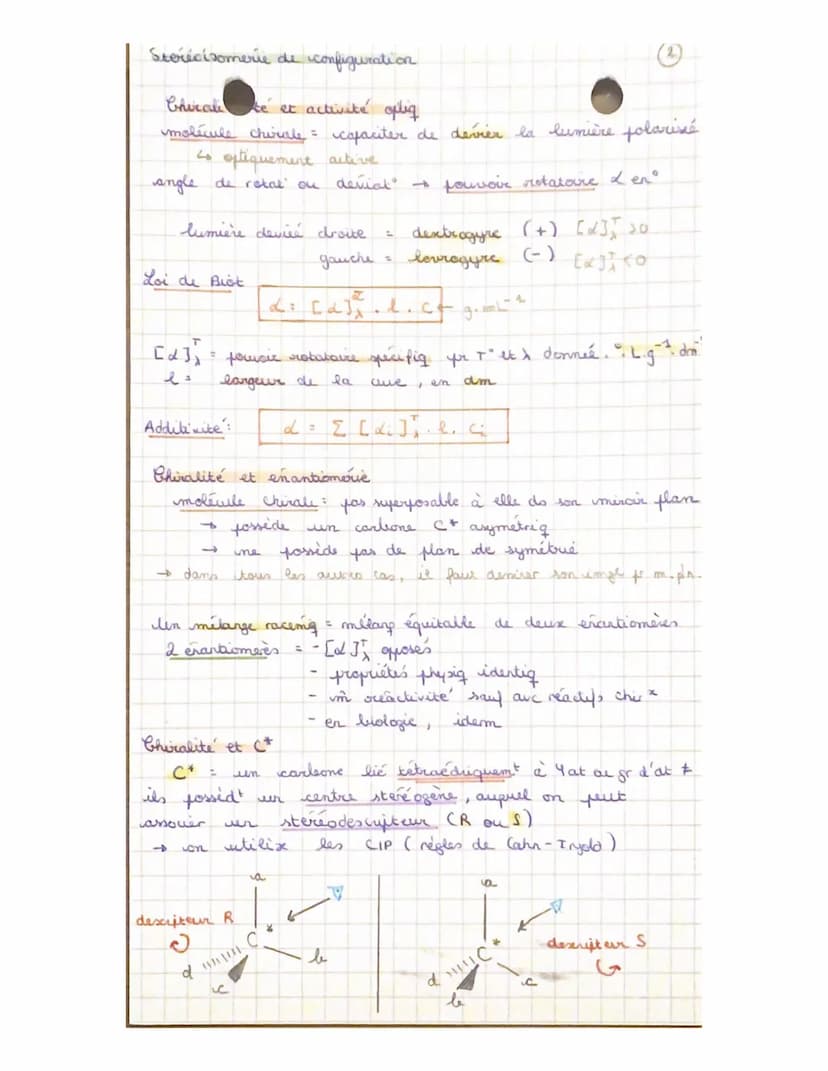 Stéréoisomérie de configuration
②
Chiralité et activité optiq
molécule chirale = capaciter de dévier la lumière polarisé
↳ optiquement active
angle de rotat° ou déviat° → pouvoir rotatoire α en°
lumière deviée droite = dextrogyre (+) [α]ᵀλ >0
gauche = levrogyre (-) [α]ᵀλ <0
Loi de Biot
α = [α]ᵀλ . l . C ← g.mL⁻¹
[α]ᵀλ = pouvoir rotatoire spécifiq pr T° et λ donnée. °.L.g⁻¹.dm⁻¹
l = largeur de la cuve, en dm
Additivité :
α = Σ [αi]ᵀλ . l . Ci
Chiralité et énantiomérie
molécule chirale : pas superposable à elle ds son miroir plan
→ possède un carbone C* asymétriq
→ ne possède pas de plan de symétrie
→ dans tous les autres cas, il faut dessiner son image pr m. pln.
Un mélange racémiq = mélang équitable de deux énantiomères
2 énantiomères = - [α]ᵀλ opposés
- propriétés physiq identiq
- m̂ réactivité sauf avc réactifs chir x
- en biologie, idem
Chiralité et C*
C* = un carbone lié tétraédriquemt à 4 at ou gr d'at ≠
ils possèdt un centre stéréogène, auquel on peut
associer un stéréodescripteur (R ou S)
→ on utilise les CIP (règles de Cahn-Ingold)
a
descripteur R
C *
b
d
c
a
C *
descripteur S
d
c
b